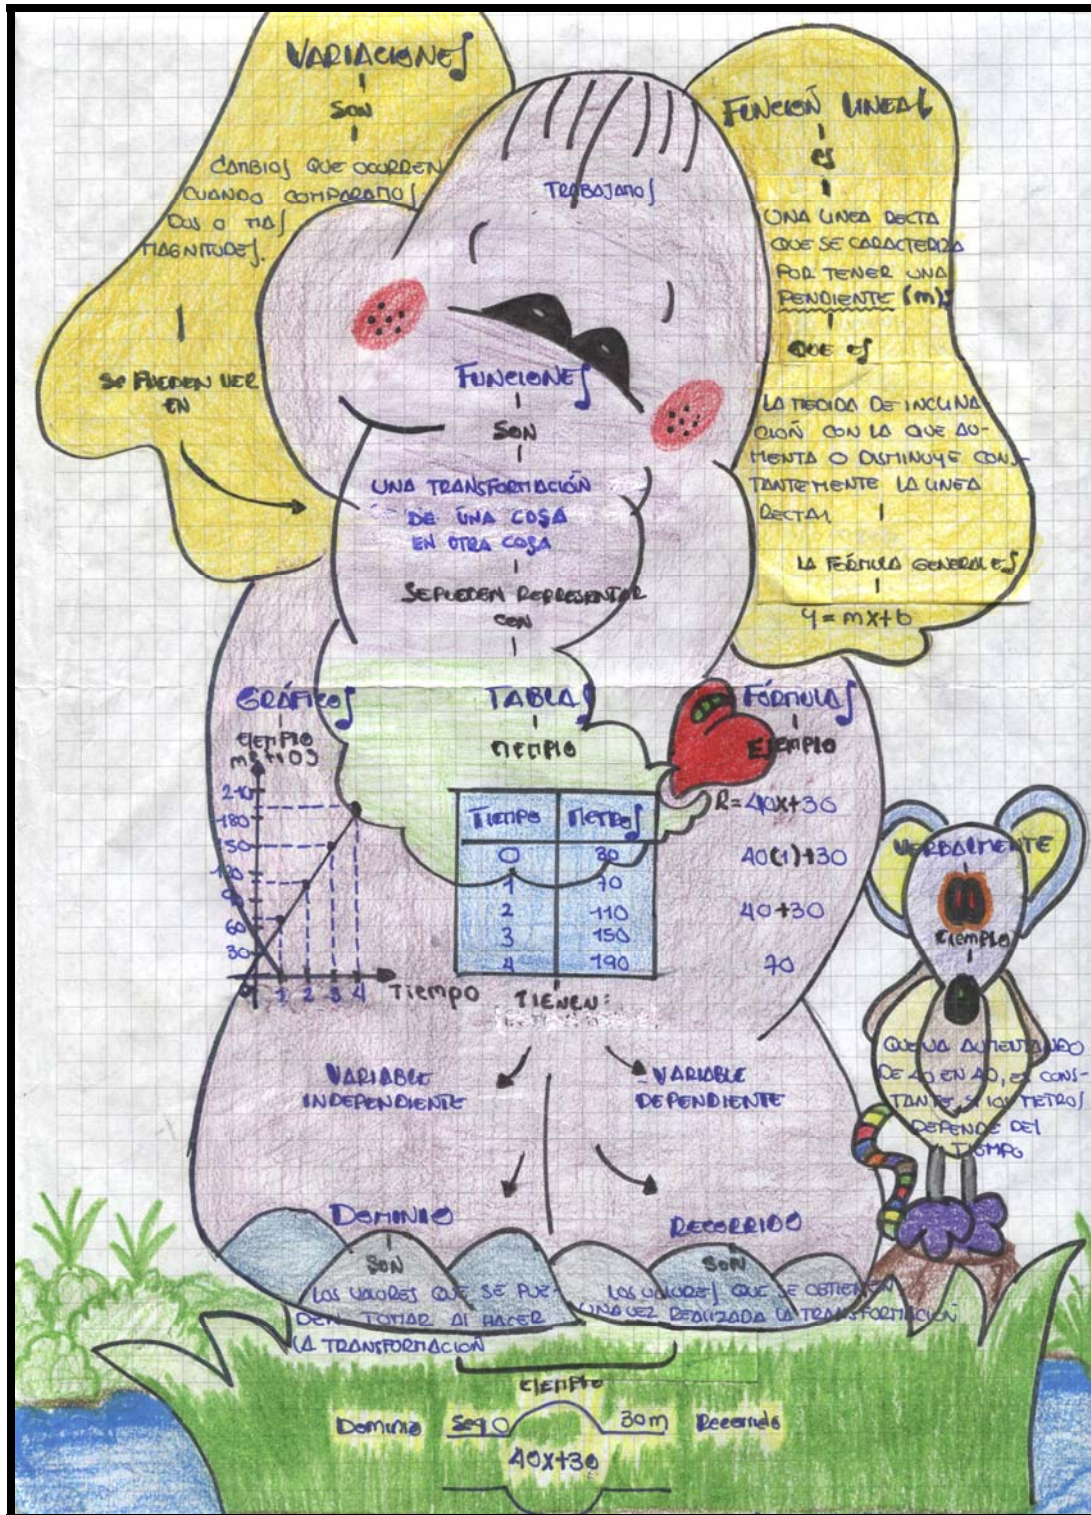 VARIACIONES
SON
CAMBIOS QUE OCURREN
CUANDO COMPARAMOS
DOS O MAS
MAGNITUDES.
SE PUEDEN VER
EN
TRABAJAMOS
FUNCIONES
SON
UNA TRANSFORMACIÓN
DE UNA COSA
EN OTRA COSA
SE PUEDEN REPRESENTAR
CON
FUNCIOÑ LINEAL
ES
UNA LINEA RECTA
QUE SE CARACTERIZA
POR TENER UNA
PENDIENTE (m);
QUE ES
LA MEDIDA DE INCLINA-
CIOÑ CON LA QUE AU-
MENTA O DISMINUYE CONS-
TANTEMENTE LA LINEA
RECTA,
LA FÓRMULA GENERAL ES
Y = mx+b
GRÁFICOS
EJEMPLO
metros
210
180
150
120
90
60
30
0 1 2 3 4 Tiempo
TABLAS
EJEMPLO
TIEMPO METROS
0 30
1 70
2 110
3 150
4 190
FÓRMULAS
EJEMPLO
R= 40x+30
40(1)+30
40+30
70
VERBALMENTE
EJEMPLO
QUE VA AUMENTANDO
DE 40 EN 40, ES CONS-
TANTE, SI LOS METROS
DEPENDE DEL
TIEMPO
TIENEN:
VARIABLE
INDEPENDIENTE
VARIABLE
DEPENDIENTE
DOMINIO
SON
LOS VALORES QUE SE PUE-
DEN TOMAR AL HACER
LA TRANSFORMACIÓN
RECORRIDO
SON
LOS VALORES QUE SE OBTIENEN
UNA VEZ REALIZADA LA TRANSFORMACIÓN
EJEMPLO
Dominio Seg 0 30m Recorrido
40X+30